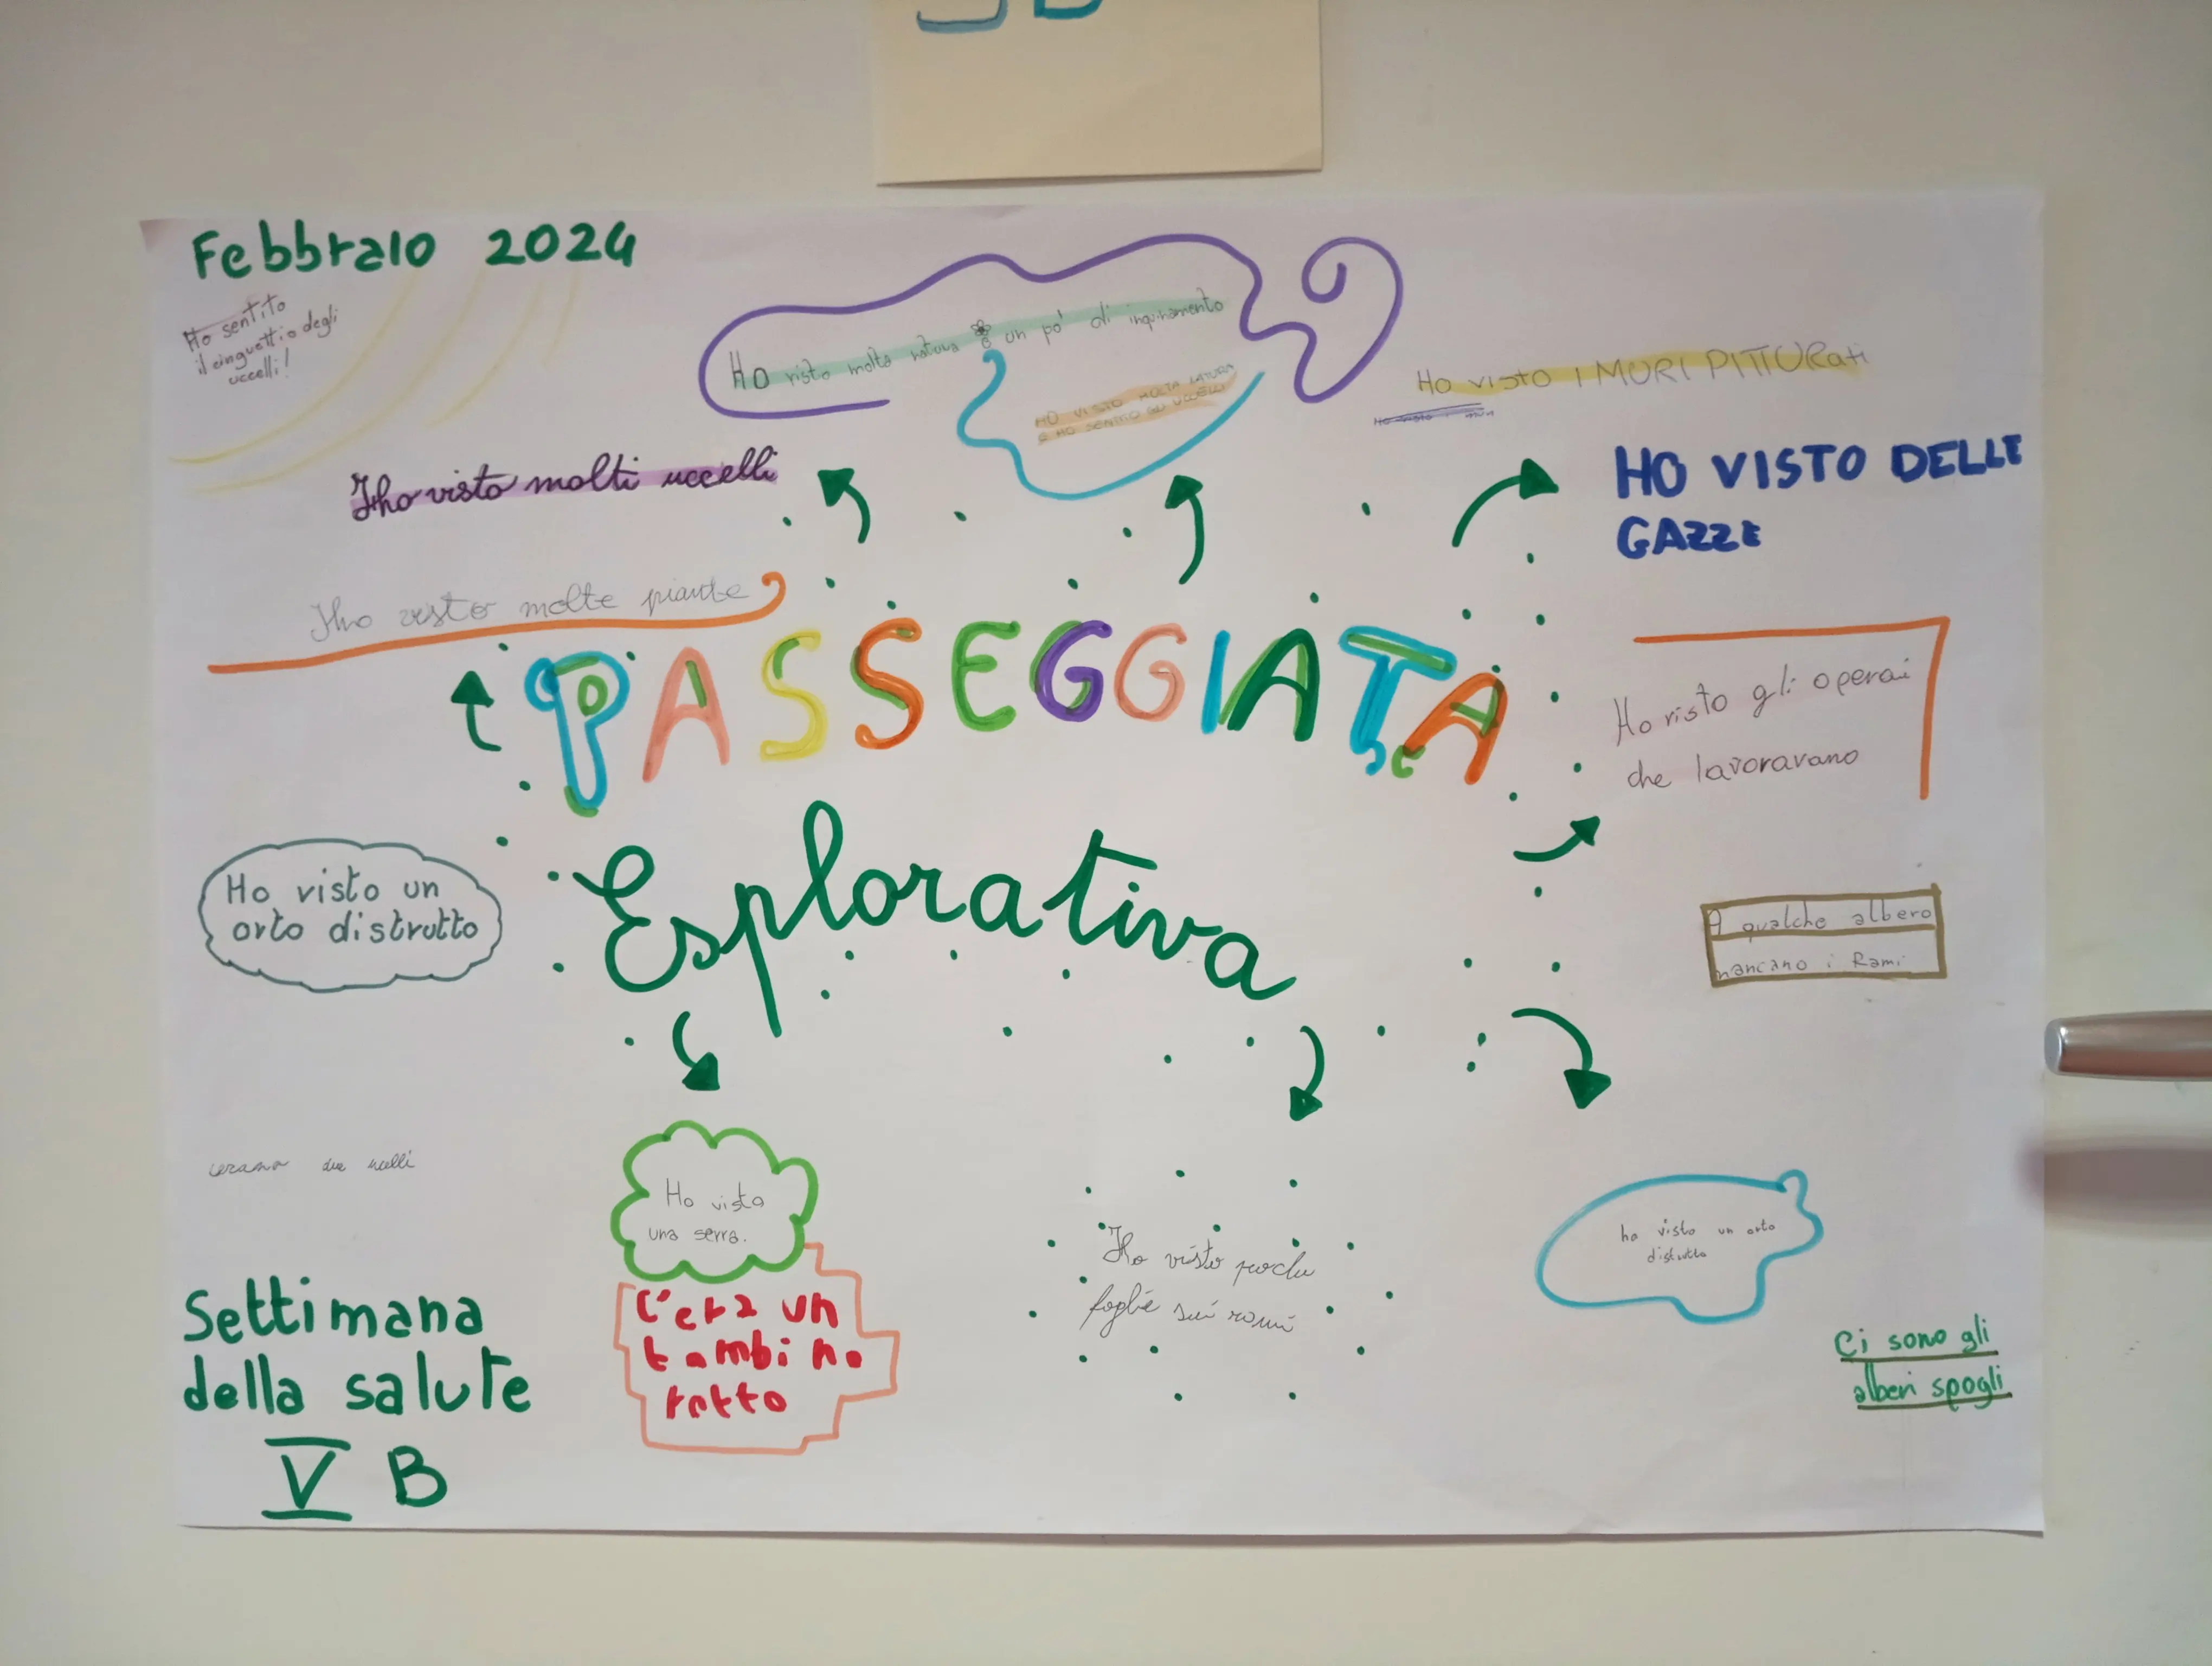 Febbraio 2024
Ho sentito
il cinguettio degli
uccelli!
Ho visto molta natura e un po' di inquinamento
HO VISTO MOLTA NATURA
E HO SENTITO GLI UCCELLI
Ho visto I MURI PITTURati
Ho visto i muri
Ho visto molti uccelli
HO VISTO DELLE
GAZZE
Ho visto molte piante
PASSEGGIATA
Esplorativa
Ho visto gli operai
che lavoravano
Ho visto un
orto distrutto
A qualche albero
mancano i Rami
c'erano due
Ho visto
una serra.
C'era un
bambino
rotto
Ho visto poche
foglie sui rami
ho visto un orto
distrutto
Ci sono gli
alberi spogli
Settimana
della salute
V B